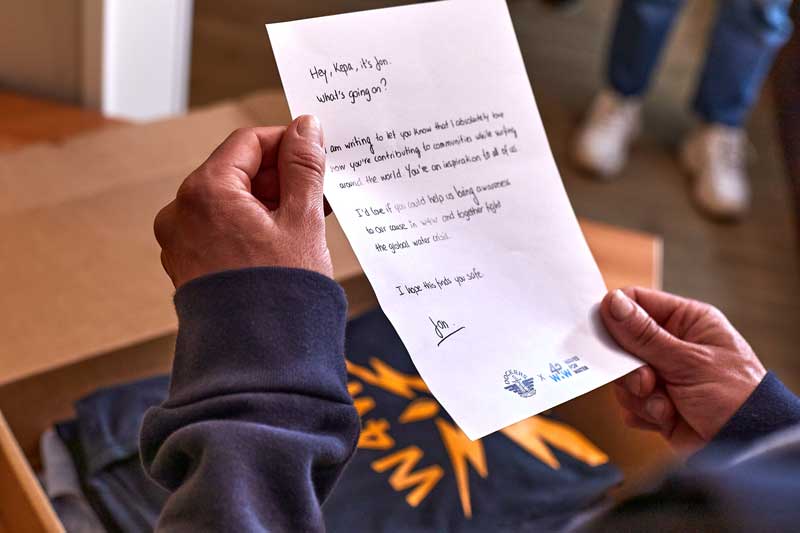 Hey, Kepa, it's Jon.
What's going on?
I am writing to let you know that I absolutely love
how you're contributing to communities while surfing
around the world. You're an inspiration to all of us
I'd love if you could help us bring awareness
to our cause in w4w and together fight
the global water crisis.
I hope this finds you safe.
Jon.
X
WAVES
FOR
WATER
W4W
WAT